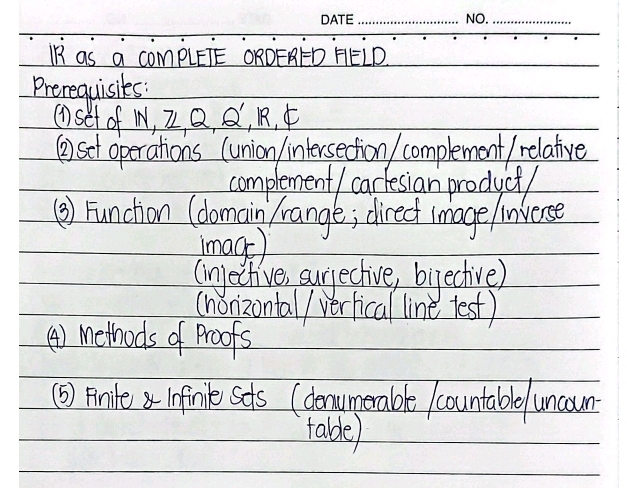 DATE ............................ NO. ......................
IR as a COMPLETE ORDERED FIELD
Prerequisites:
(1) set of IN, ℤ, Q, Q', IR, ₵
(2) Set operations (union/intersection/complement/relative
complement/cartesian product/
(3) Function (domain/range; direct image/inverse
image)
(injective, surjective, bijective)
(horizontal/vertical line test)
(4) Methods of Proofs
(5) Finite & Infinite Sets (denumerable/countable/uncoun-
table)